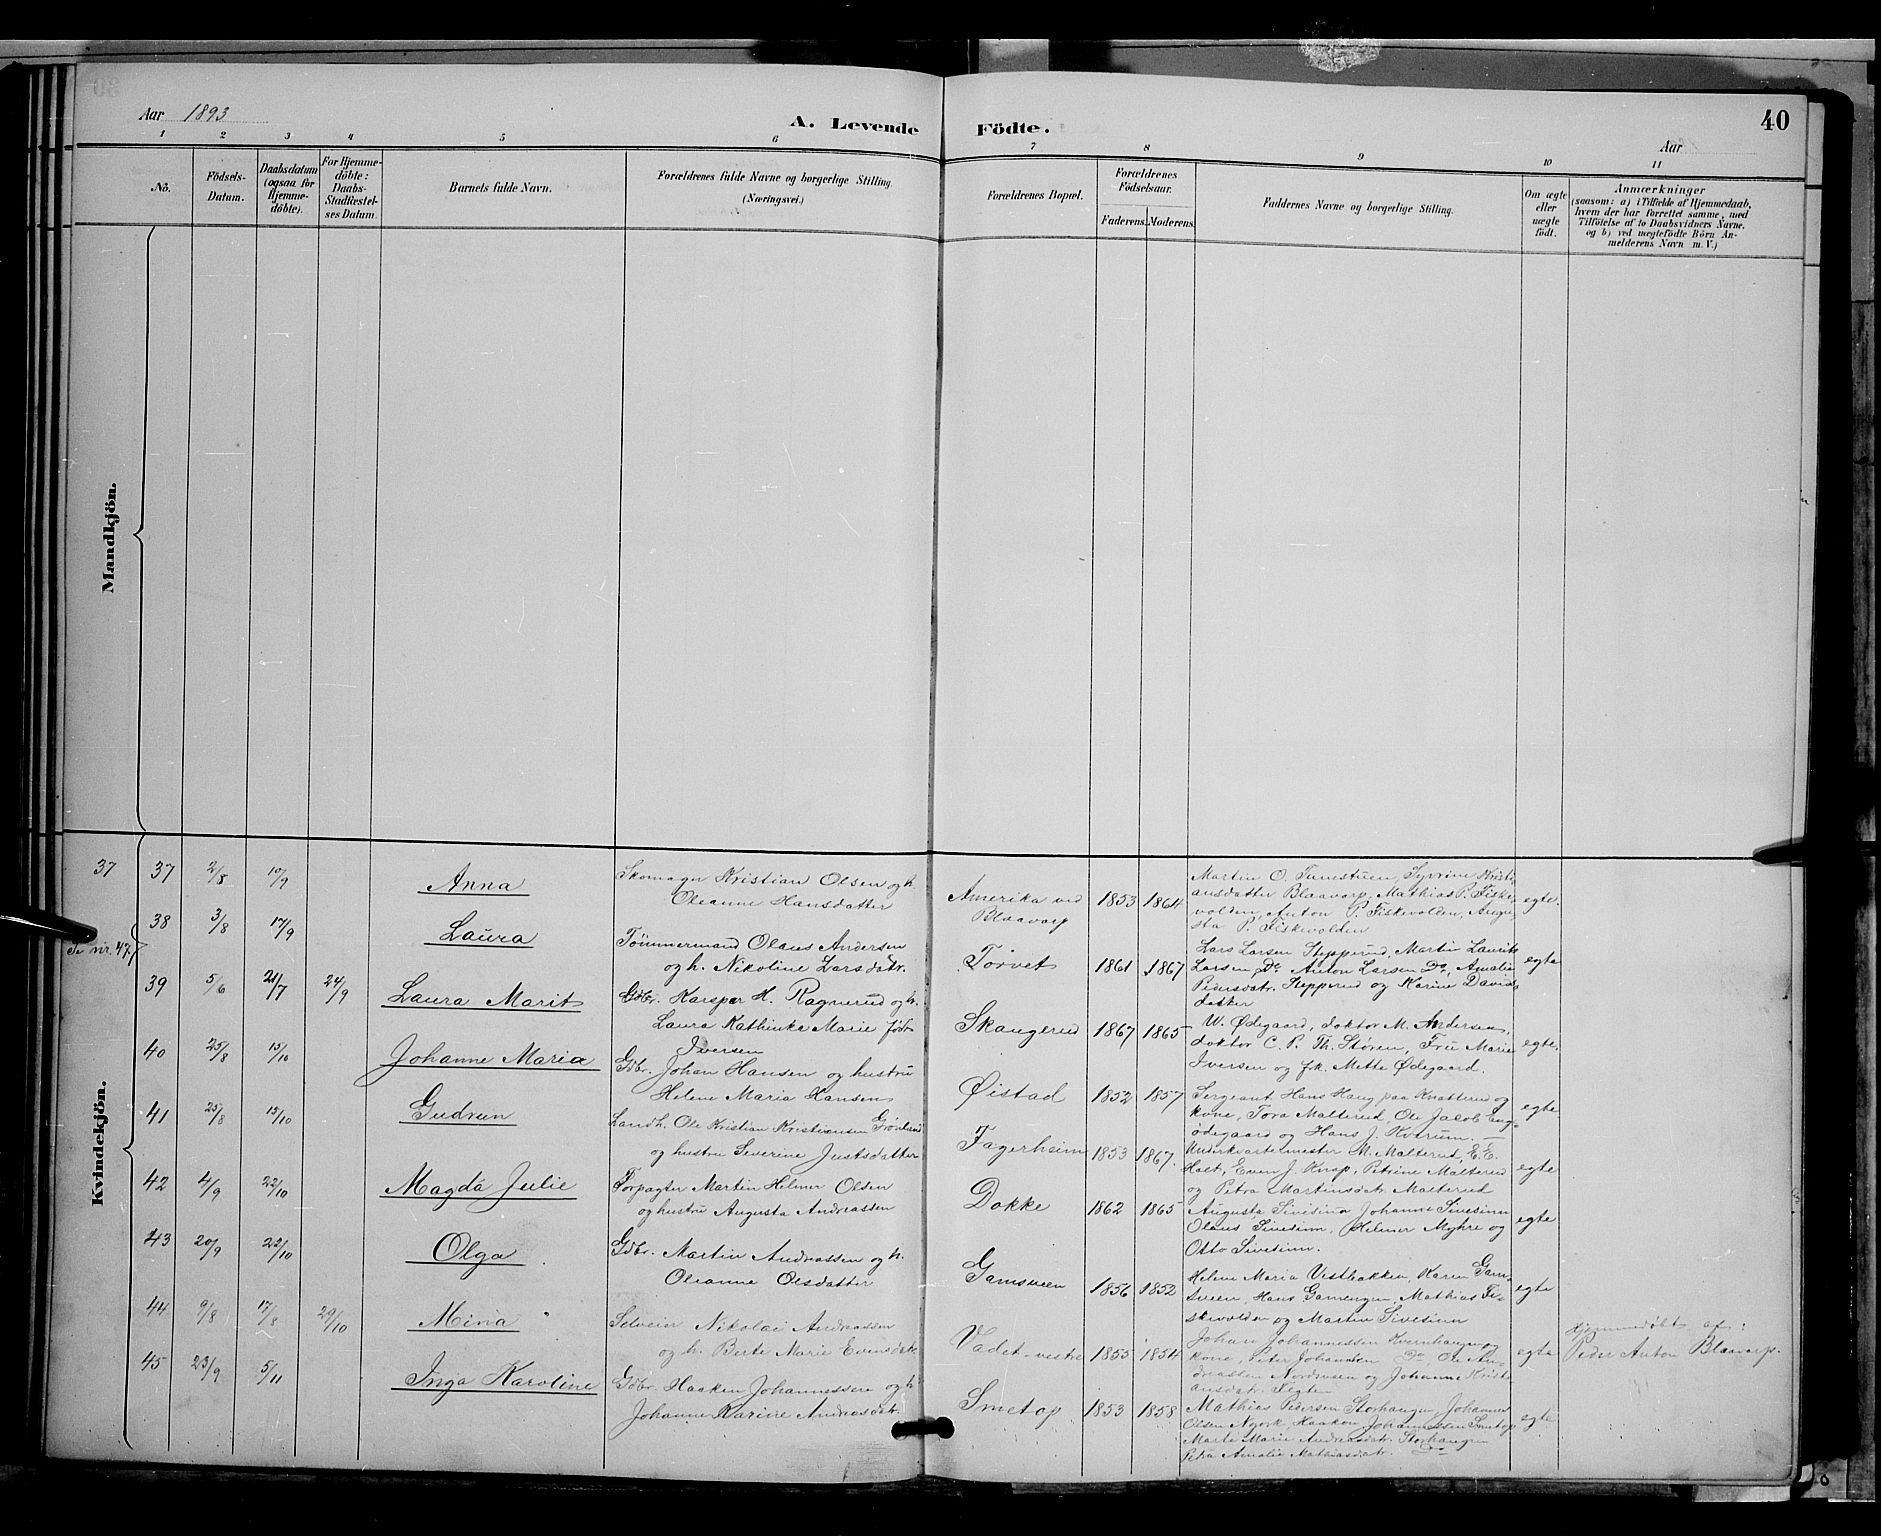 Aar 1893
A. Levende Födte.
40
Aar
1 2 3 4 5 6 7 8 9 10 11
No.
Födsels-
Datum.
Daabsdatum
(ogsaa for
Hjemme-
döbte).
For Hjemme-
döbte:
Daabs-
Stadfæstel-
ses Datum.
Barnets fulde Navn.
Forældrenes fulde Navne og borgerlige Stilling.
(Næringsvei.)
Forældrenes Bopæl.
Forældrenes
Födselsaar.
Faderens. Moderens.
Faddernes Navne og borgerlige Stilling.
Om ægte
eller
uægte
födt.
Anmærkninger
(saasom: a) i Tilfælde af Hjemmedaab,
hvem der har forrettet samme, med
Tilföielse af to Daabsvidners Navne.
og b) ved uægtefödte Börn An-
melderens Navn m. V.)
Mandkjön.
Kvindekjön.
37
Se nr. 47
37 2/8 10/9
Anna
Skomager Kristian Olsen og h.
Oleanne Hansdatter
Amerika ved
Blaavarp
1853 1864
Martin O. Tunestuen, Syvrine Kristi-
ansdatter Blaavarp, Mathias P. Fiske-
volden, Anton P. Fiskevolden, Augu-
sta P. Fiskevolden
egte.
38 3/8 17/9
Laura
Tömmermand Olaus Andersen
og h. Nikoline Larsdatr.
Torvet
1861 1867
Lars Larsen Stepperud, Martin Laurits
Larsen Do, Anton Larsen Do, Amalie
Pedersdatr. Stepperud og Karine Davids-
datter
egte
39 5/6 21/7 24/9
Laura Marit
Gdbr. Kaspar H. Ragnerud og h.
Laura Kathinka Marie född
Iversen
Skaugerud
1867 1865
W. Ødegaard, doktor M. Andersen,
doktor C. P. Th. Støren, Fru Marie
Iversen og frk. Mette Ødegaard.
egte.
40 25/8 15/10
Johanne Maria
Gdbr. Johan Hansen og hustru
Helene Maria Hansen
Øistad
1852 1857
Sergeant Hans Haug paa Knatterud og
kone, Tora Malterud, Ole Jacob Eng-
ödegaard og Hans J. Kværum.
egte
41 25/8 15/10
Gudrun
Landh. Ole Kristian Kristiansen Grønland
og hustru Severine Justsdatter
Fagerheim
1853 1867.
Underkvartermester M. Malterud, E. E.
Holt, Even J. Knap, Petrine Malterud
og Petra Martinsdatr. Malterud
egte
42 4/9 22/10
Magda Julie
Forpagter Martin Helmer Olsen
og hustru Augusta Andreassen
Dokke
1862 1865
Augusta Sivesind Johanne Sivesind
Olaus Sivesind, Helmer Myhre og
Otto Sivesind.
egte
43 20/9 22/10
Olga
Gdbr. Martin Andreassen og h.
Oleanne Olsdatter
Gamsveen
1856 1852
Helene Maria Vestbakken, Karen Gam-
sveen, Hans Gamengen, Mathias Fi-
skevolden og Martin Sivesind
egte
44 9/8 17/8 29/10
Mina
Selveier Nikolai Andreassen
og h. Berte Marie Evensdatr.
Vadet-vestre
1855 1854
Johan Johannessen Kvernhaugen og
kone, Peter Johansen Do, Ole An-
dreassen Nordraaen og Johanne Kristi-
ansdatr.
egte
Hjemmedöbt af:
Peder Anton Blaavarp.
45 23/9 5/11
Inga Karoline
Gdbr. Haaken Johannessen og h.
Johanne Karine Andreasdatr.
Smetop
1853 1858
Mathias Pedersen Storhaugen, Johannes
Olsen Nyork, Haakon Johannessen Smetop
Marte Marie Andreasdatr. Storhaugen
Petra Amalie Mathiasdatr. Do
egte